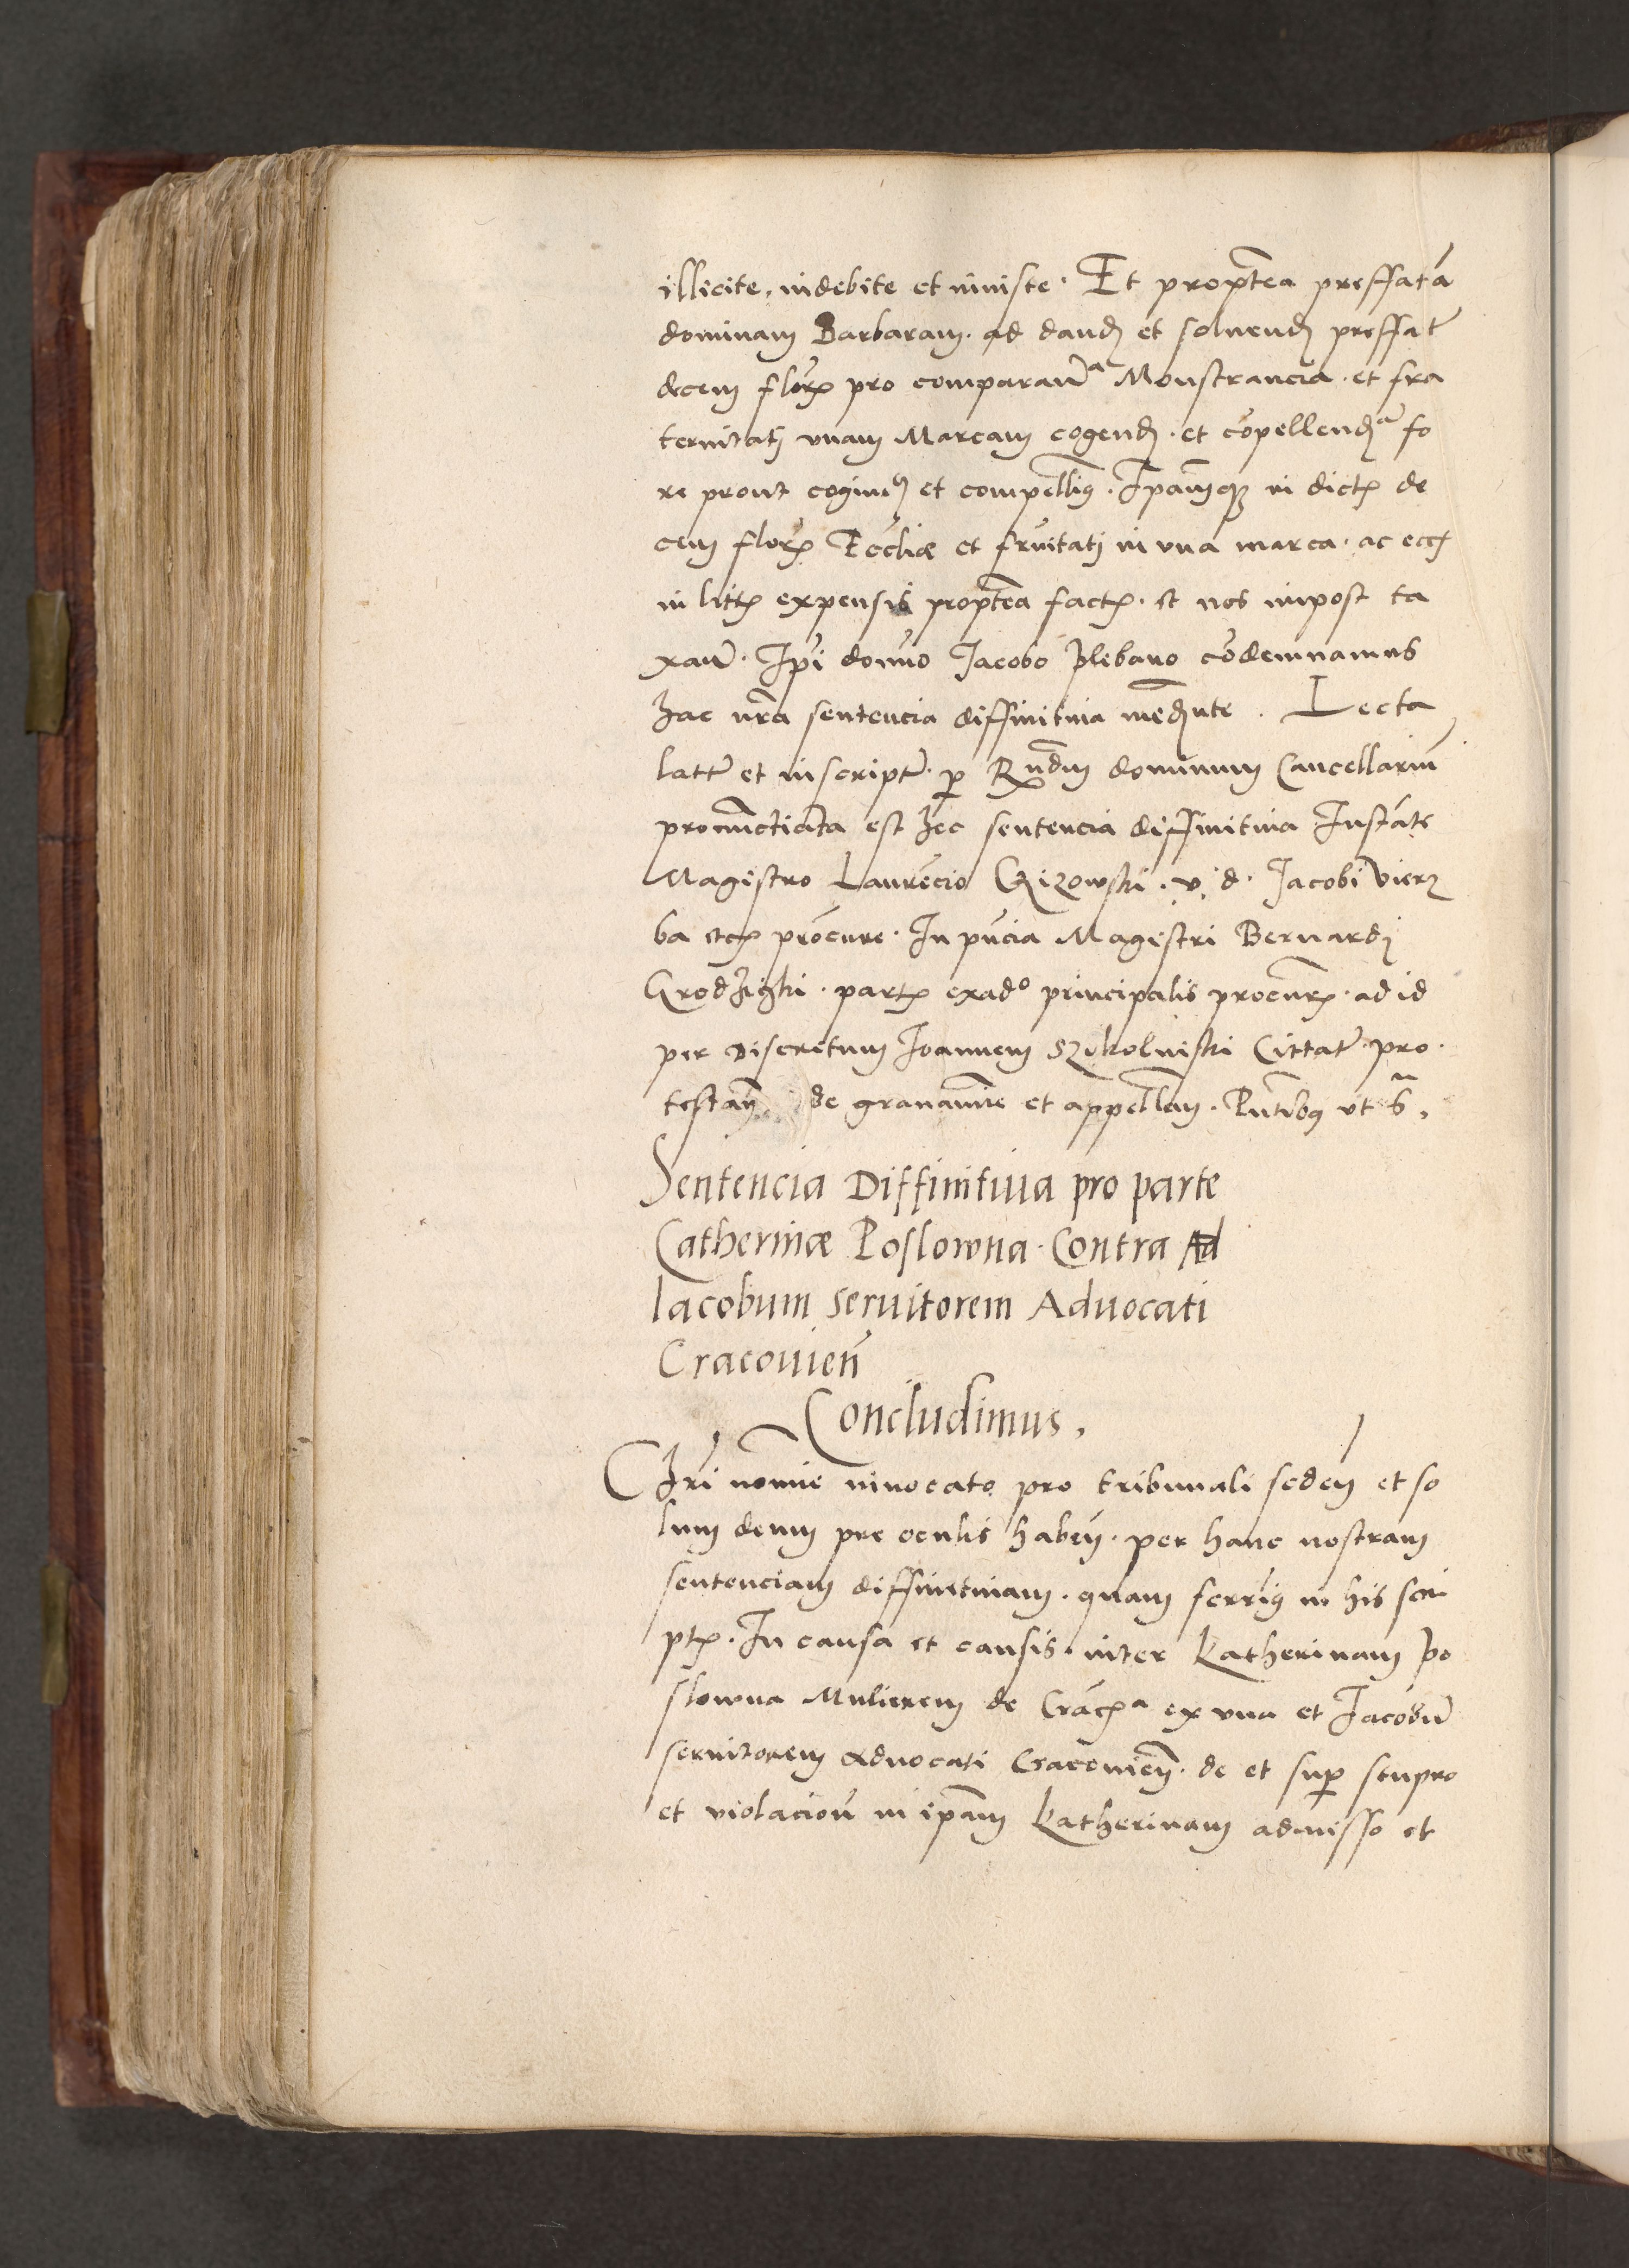 illicite, indebite et iniuste. Et propterea preffatã
dominam Barbaram. ad dand et soluend preffat
decem flor pro comparanda Monstrancia. et fra
ternitati vnam Marcam cogend. et cõpellendã fo
re prout cogimus et compellimus. Ipamque in dict de
cem flor Eccliæ et frnitati in vna marca. ac
in litt expensis propterea fact. et nos impost ta
xand. Ipi domno Jacobo plebano cõdemnamus
hac nrã sentencia diffinitiua mediante. Lecta
lat et in script. per Rndum dominum Cancellariũ
pronunctiata est hec sentencia diffinitiua Instãte
Magistro Laurẽcio Czizowski. v. d. Jacobi Vierz
ba procure. In pñcia Magistri Bernardi
Grodziski. part exadº principalis procur. ad id
per Discretum Joannem Szkolniski Cittat. pro
testañ de grauamine et appelland. Pntibus vt s.
Sentencia Diffinitiua pro parte
Catherinæ Poslowna. Contra Ad
Iacobum seruitorem Aduocati
Cracouieñ
Concludimus.
Chri nomine inuocato pro tribunali sedeñ et so
lum deum pre oculis habeñ. per hanc nostram
sentenciam diffinitiuam. quam ferrimus in his scri
pt. In causa et causis. inter Katherinam Po
slowna Mulierem de Crac ex vna et Jacobũ
seruitorem aduocati Cracouieñ. de et super stupro
et violacioñ in ipam Katherinam admisso et